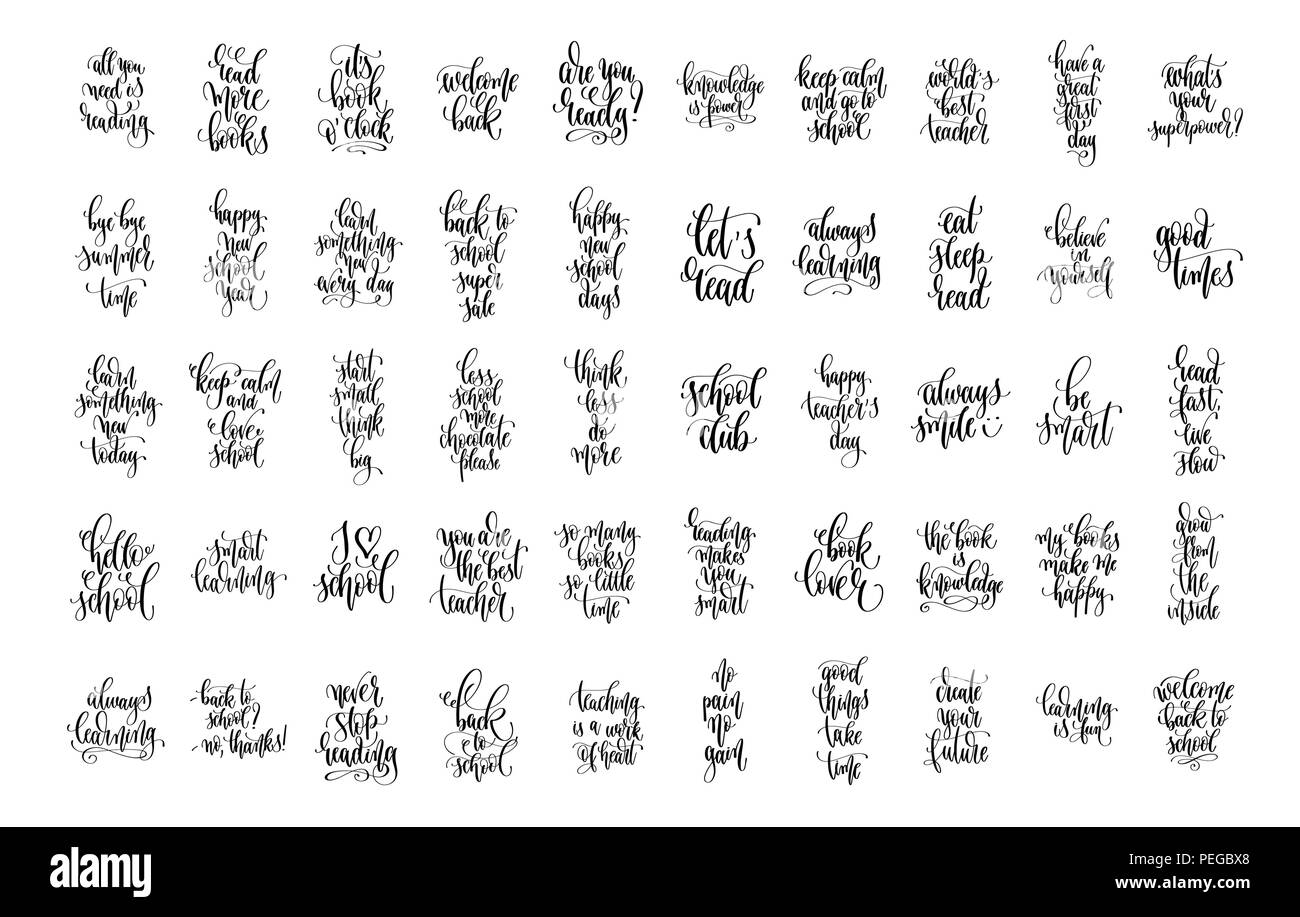 all you
need is
reading
read
more
books
it's
book
o'clock
welcome
back
are you
ready?
knowledge
is power
keep calm
and go to
school
world's
best
teacher
have a
great
first
day
what's
your
superpower?
bye bye
summer
time
happy
new
school
year
learn
something
new
every day
back to
school
super
sale
happy
new
school
days
let's
read
always
learning
eat
sleep
read
believe
in
yourself
good
times
learn
something
new
today
keep calm
and
love
school
start
small
think
big
less
school
more
chocolate
please
think
less
do
more
school
club
happy
teacher's
day
always
smile
be
smart
read
fast,
live
slow
hello
school
smart
learning
I ♡
school
you are
the best
teacher
so many
books
so little
time
reading
makes
you
smart
book
lover
the book
is
knowledge
my books
make me
happy
grow
from
the
inside
always
learning
-back to
school?
-no, thanks!
never
stop
reading
back
to
school
teaching
is a work
of heart
no
pain
no
gain
good
things
take
time
create
your
future
learning
is fun
welcome
back to
school
alamy
Image ID: PEGBX8
www.alamy.com